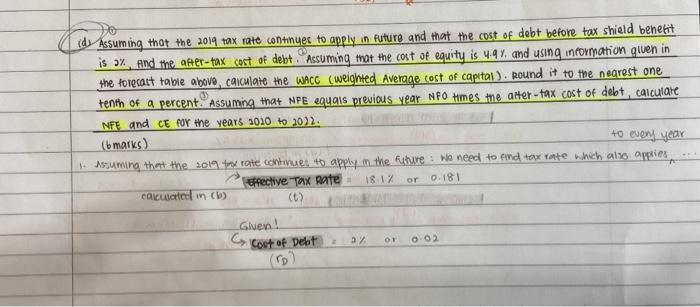 (d) Assuming that the 2019 tax rate continues to apply in future and that the cost of debt before tax shield benefit
is 2%, find the after-tax cost of debt. ① Assuming that the cost of equity is 4.9% and using information given in
the forecast table above, calculate the WACC (Weighted Average cost of capital). Round it to the nearest one
tenth of a percent. ② Assuming that NFE equals previous year NFO times the after-tax cost of debt, calculate
NFE and CE for the years 2020 to 2022.
(6 marks)
to every year
1. Assuming that the 2019 tax rate continues to apply in the future : We need to find tax rate which also applies ...
→ Effective Tax Rate = 18.1% or 0.181
calculated in (b) (t)
Given!
↳ Cost of Debt = 2% or 0.02
(rD)